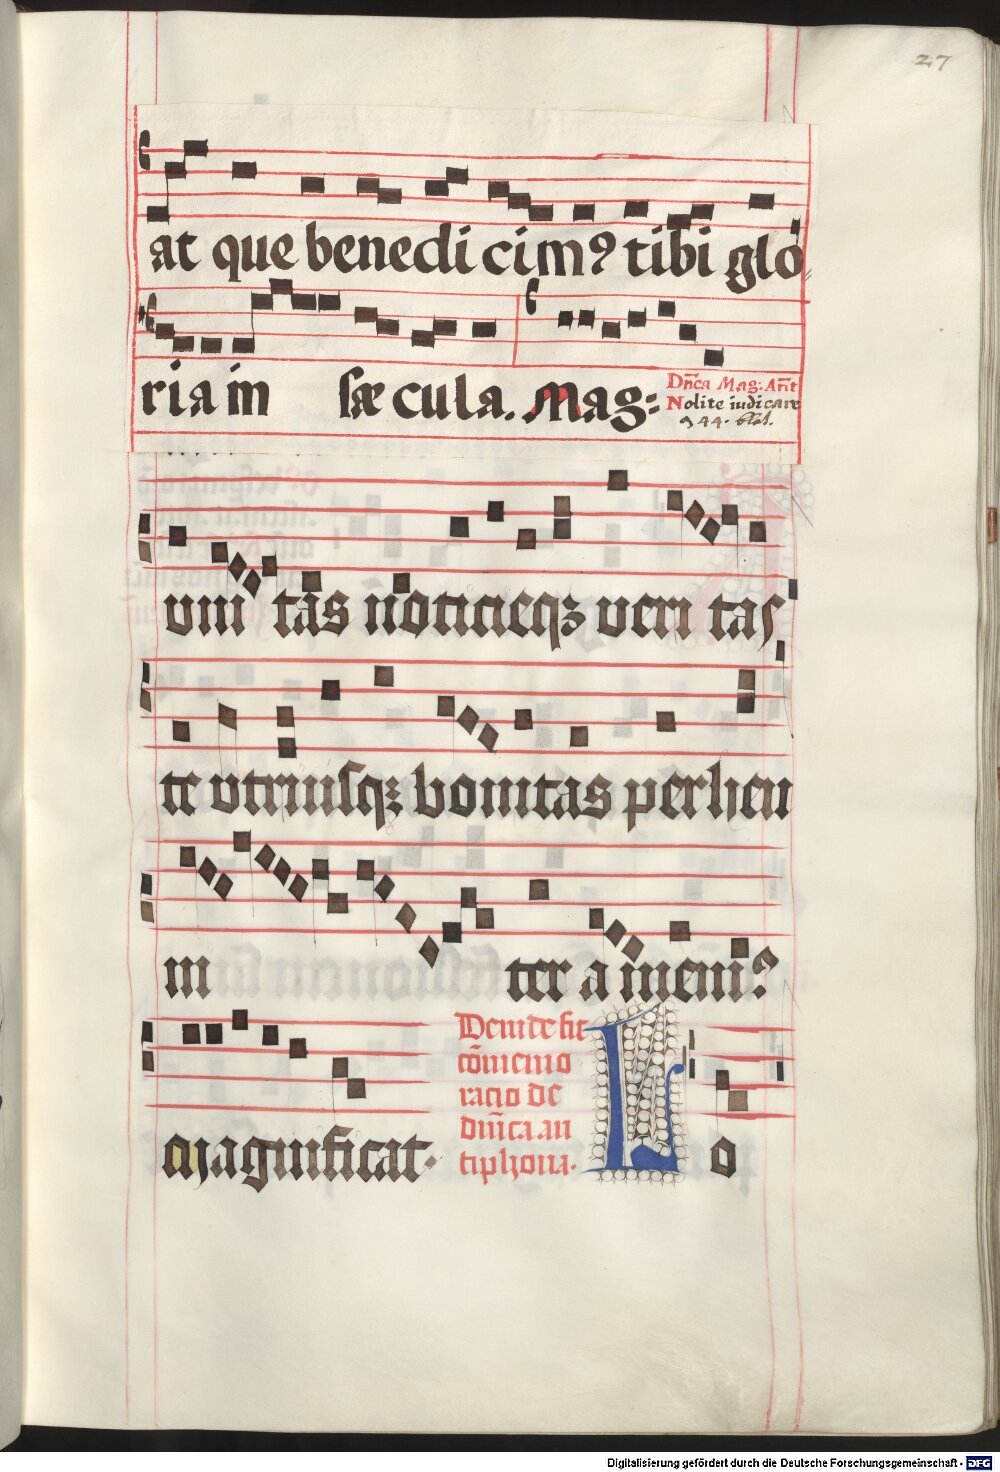 27
at que benedi cim9 tibi glo
ria in sæ cula. Mag:
Dn̄ca Mag: Ant
Nolite iudicare
944.
uni tas non neqꝫ ueri tas
te utriusqꝫ bonitas perhen
ni ter a meni?
Deinde fit
cōmemo
racio de
dn̄ica an
tiphona.
Magnificat.
L o
Digitalisierung gefördert durch die Deutsche Forschungsgemeinschaft - DFG